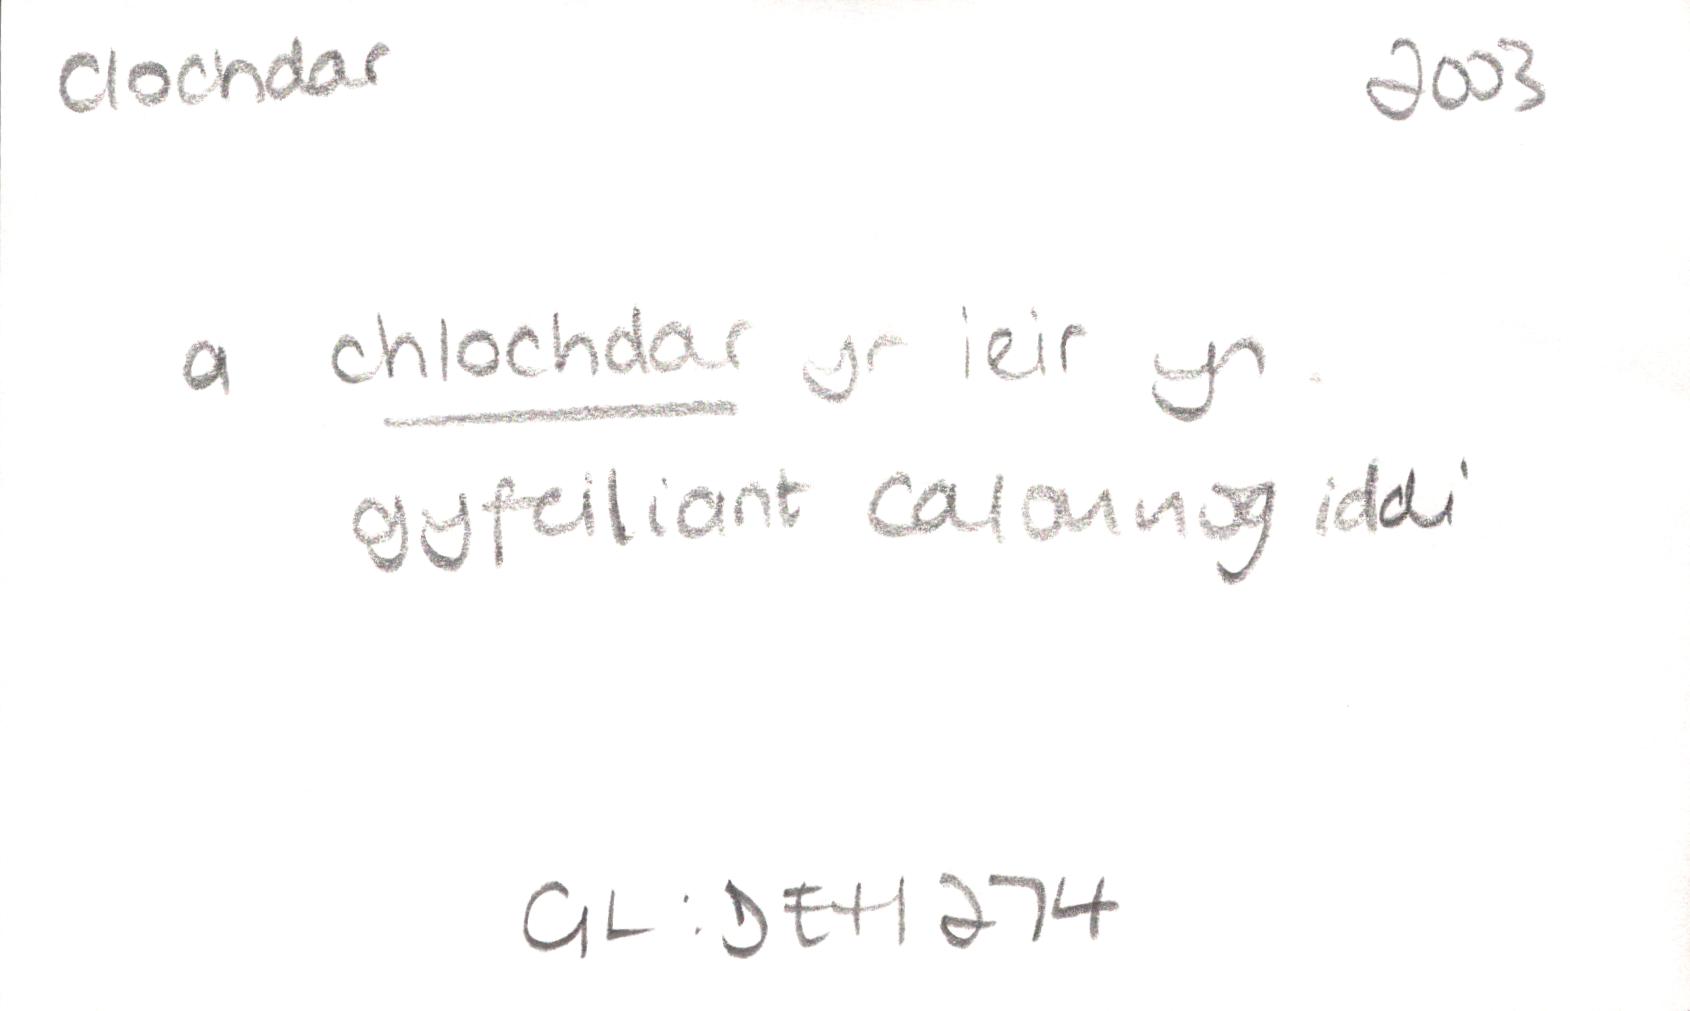 Clochdar 2003
a chlochdar yr ieir yn
gyfeiliant calonnog iddi
GL:DEH 274